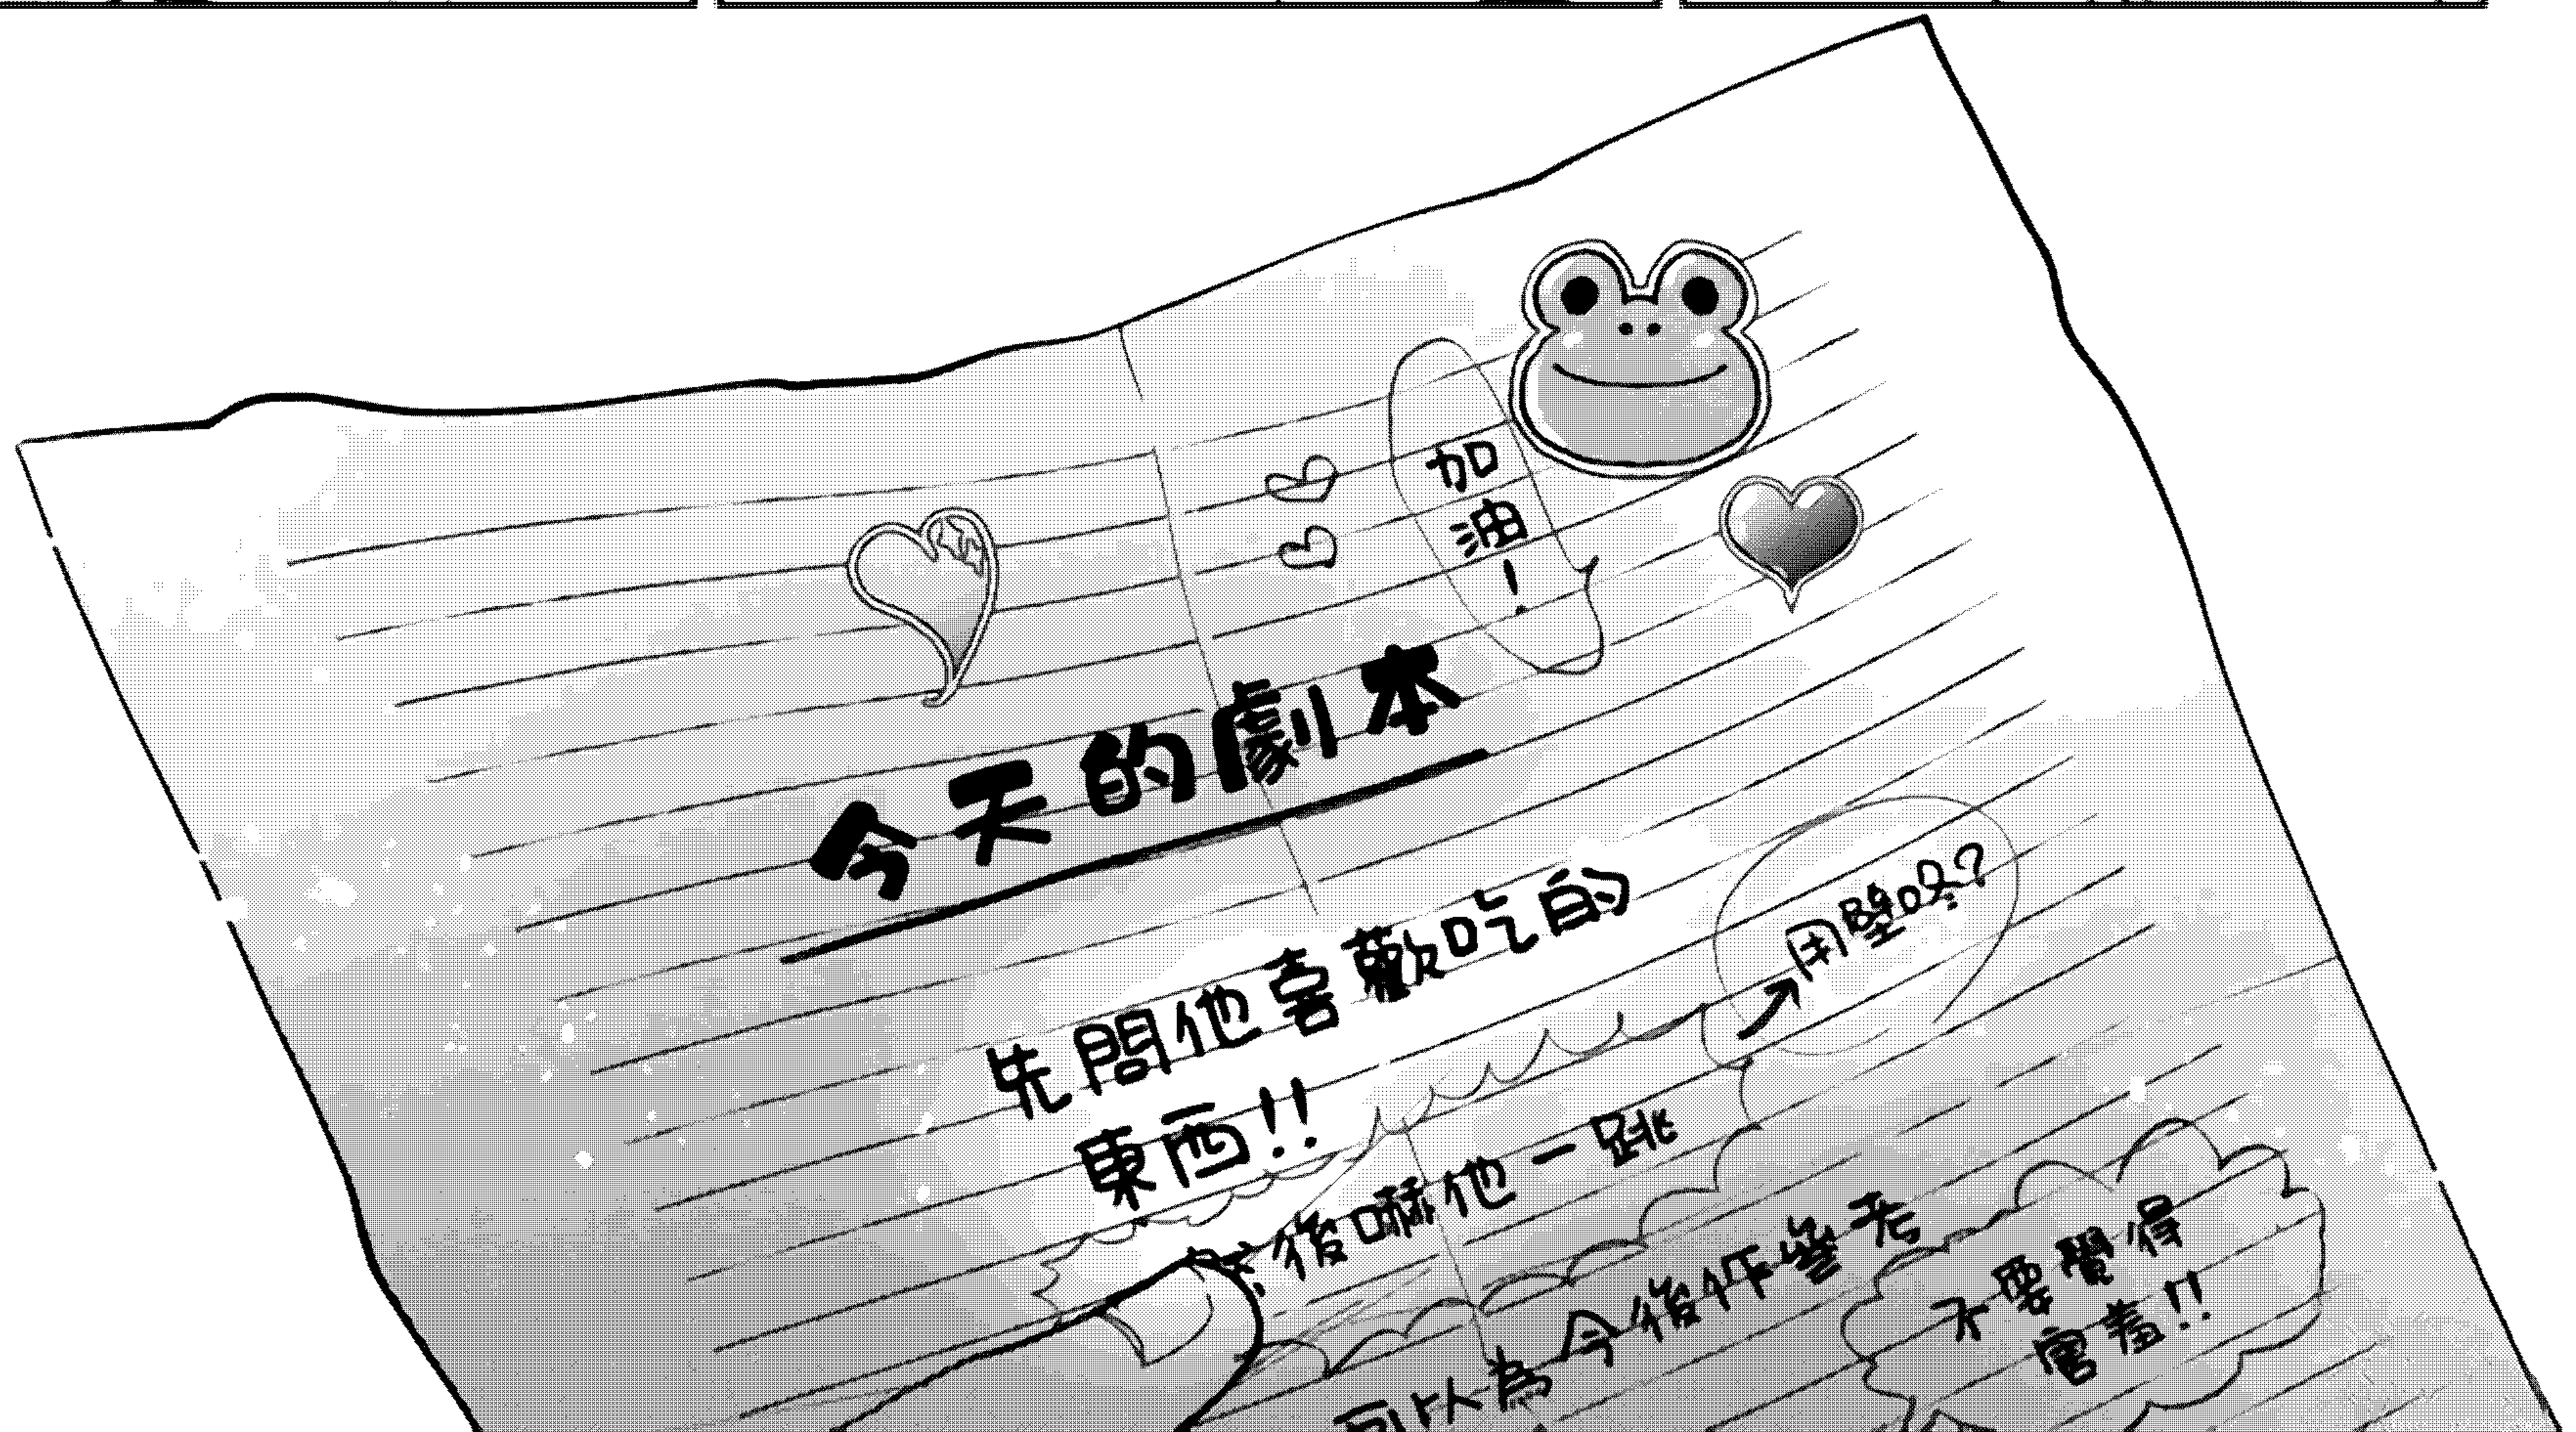 加油!
今天的劇本
先問他喜歡吃的
東西!!
用壁咚?
然後嚇他一跳
可以為今後作參考
不要覺得
害羞!!